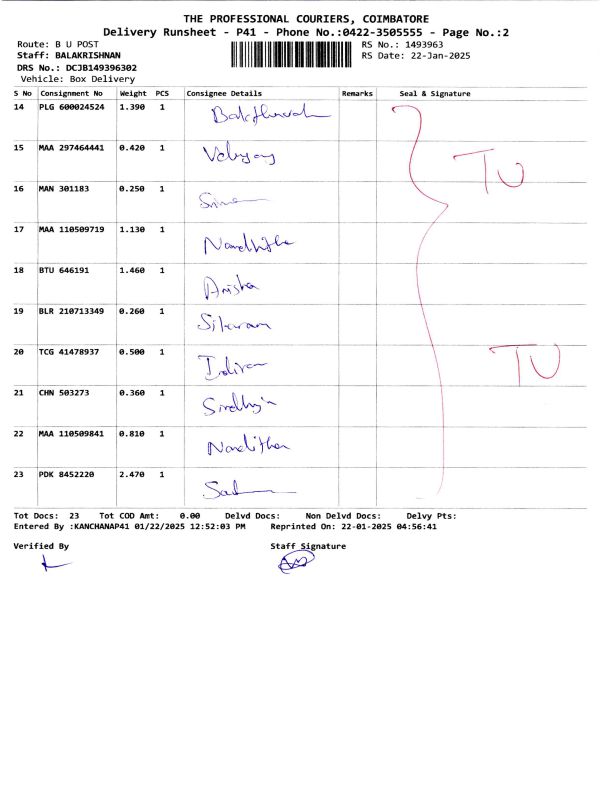 THE PROFESSIONAL COURIERS, COIMBATORE
Delivery Runsheet - P41 - Phone No.:0422-3505555 - Page No.:2
Route: B U POST RS No.: 1493963
Staff: BALAKRISHNAN RS Date: 22-Jan-2025
DRS No.: DCJB149396302
Vehicle: Box Delivery
S No Consignment No Weight PCS Consignee Details Remarks Seal & Signature
14 PLG 600024524 1.390 1
15 MAA 297464441 0.420 1
TU
16 MAN 301183 0.250 1
17 MAA 110509719 1.130 1
18 BTU 646191 1.460 1 Anisha
19 BLR 210713349 0.260 1
20 TCG 41478937 0.500 1
TU
21 CHN 503273 0.360 1
22 MAA 110509841 0.810 1 Nanditha
23 PDK 8452220 2.470 1
Tot Docs: 23 Tot COD Amt: 0.00 Delvd Docs: Non Delvd Docs: Delvy Pts:
Entered By :KANCHANAP41 01/22/2025 12:52:03 PM Reprinted On: 22-01-2025 04:56:41
Verified By Staff Signature